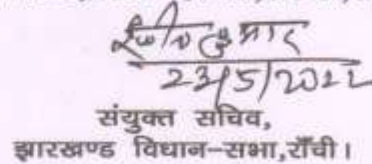 23/5/2022
संयुक्त सचिव,
झारखण्ड विधान-सभा,राँची।